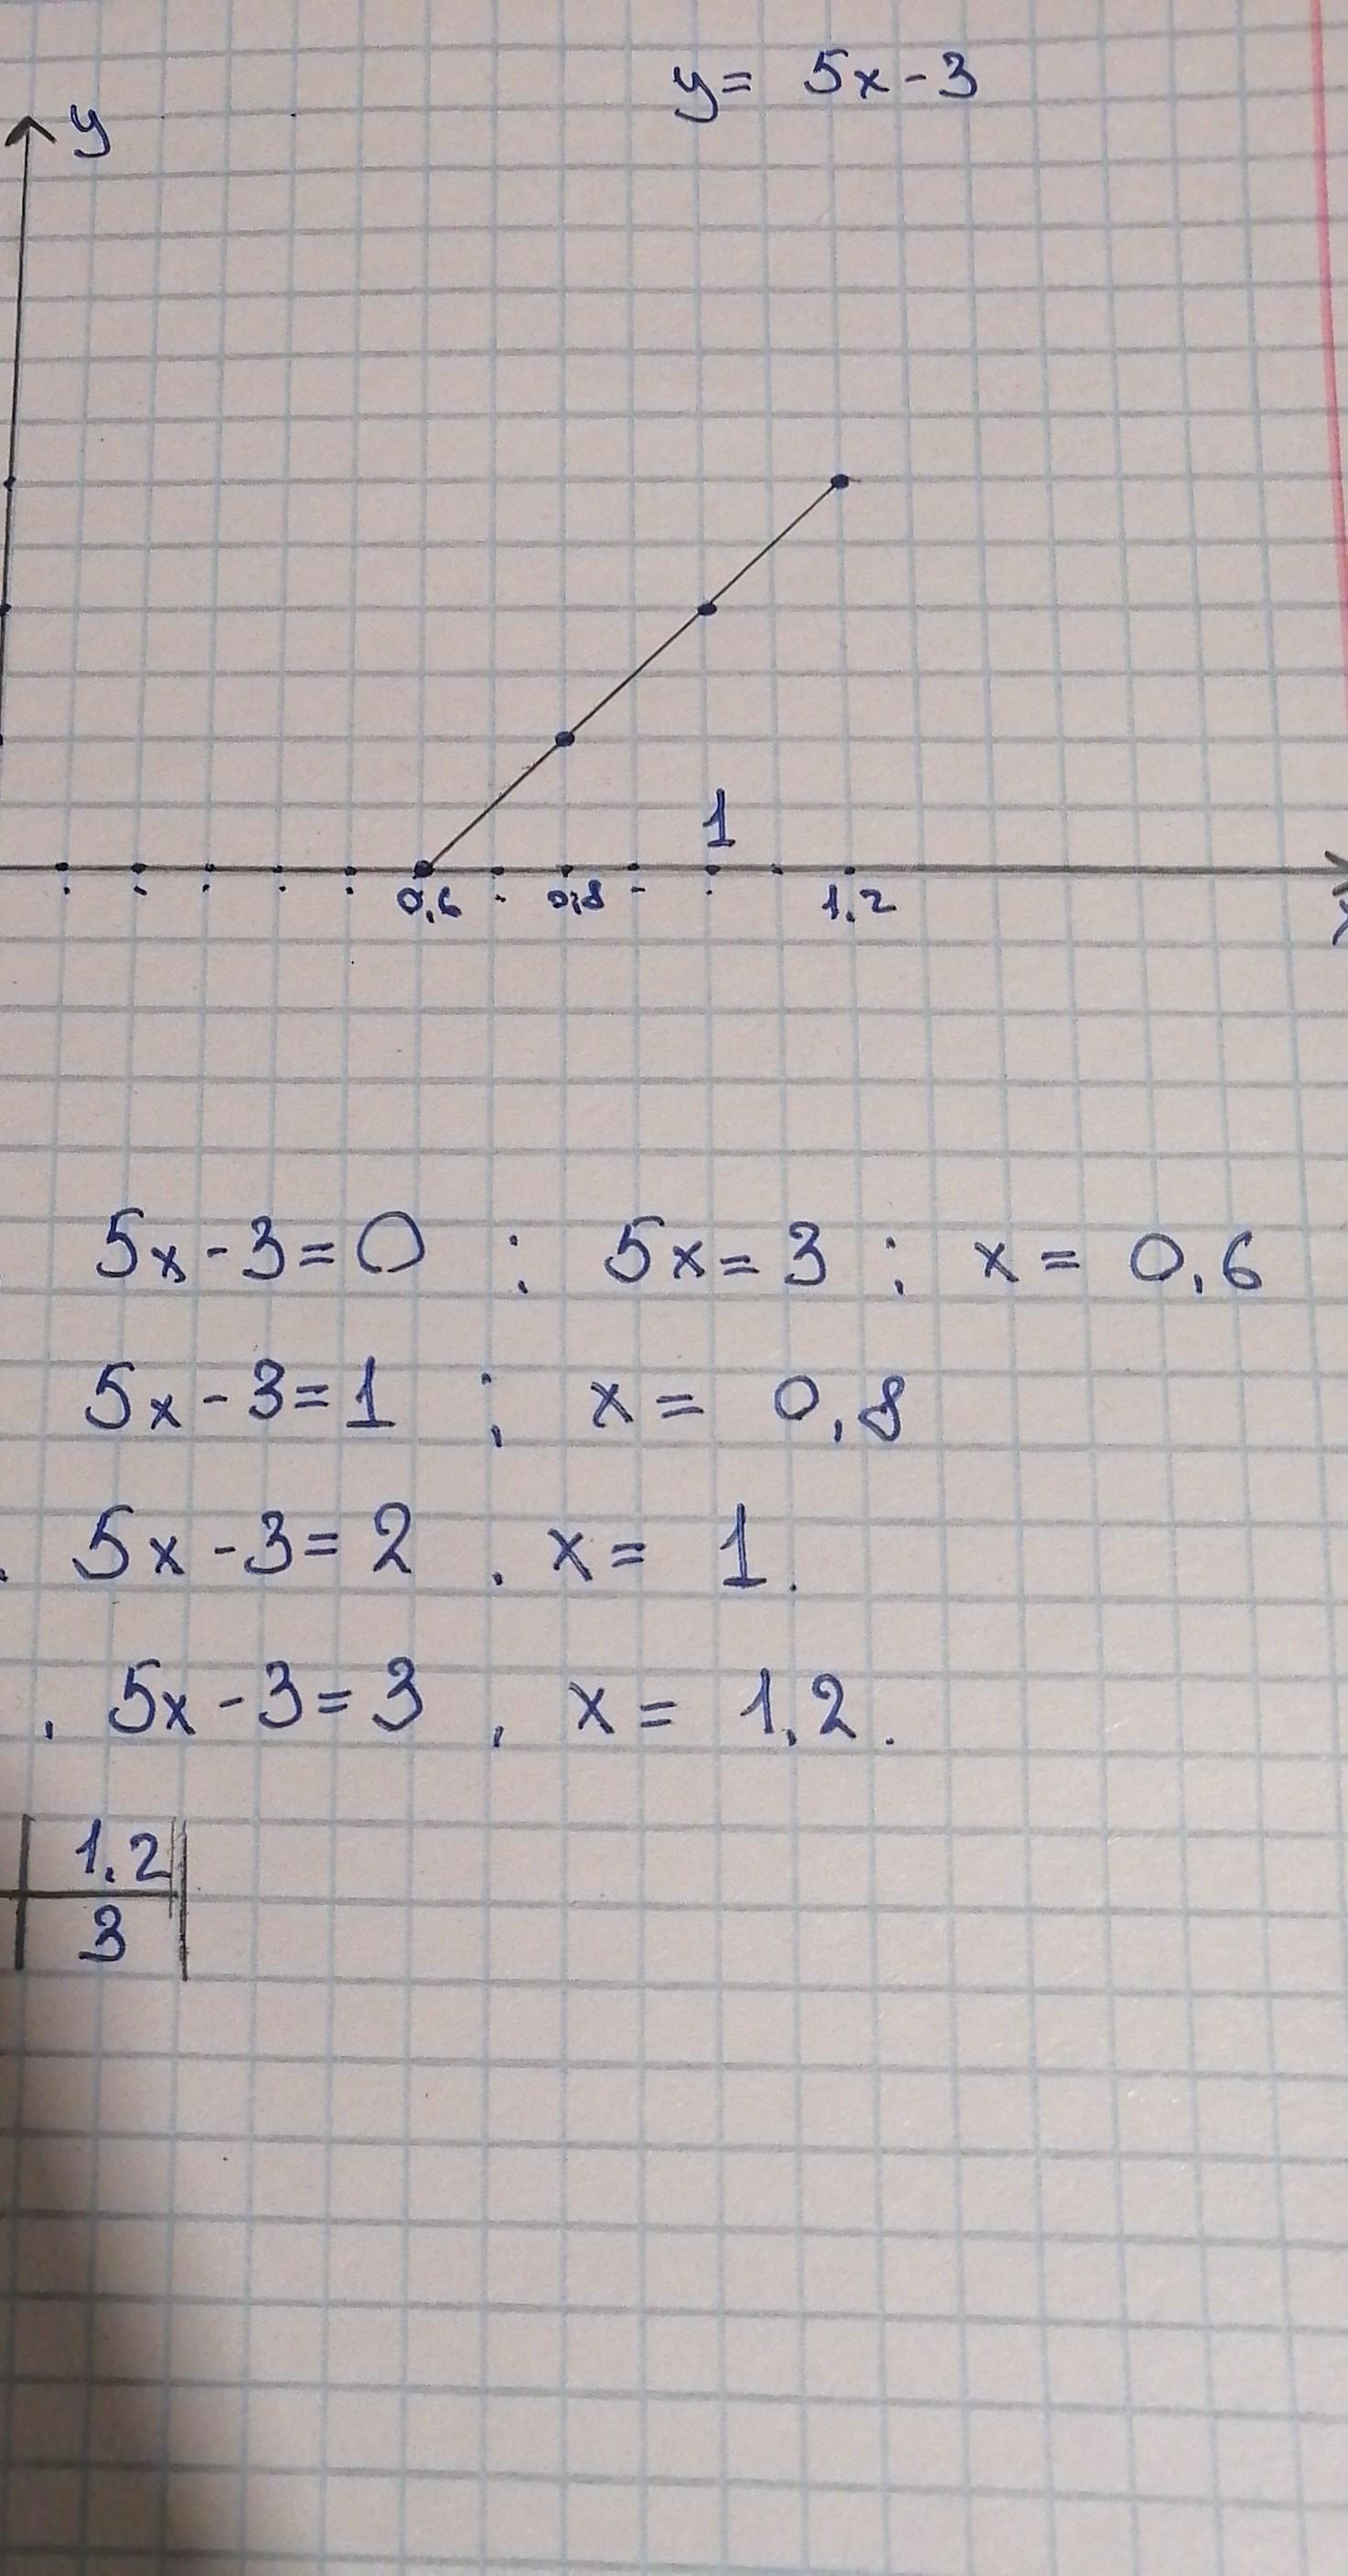 y = 5x - 3
y
1
0,6 0,8 1,2
x
5x - 3 = 0 ; 5x = 3 ; x = 0,6
5x - 3 = 1 ; x = 0,8
. 5x - 3 = 2 . x = 1.
, 5x - 3 = 3 , x = 1,2.
1,2
3